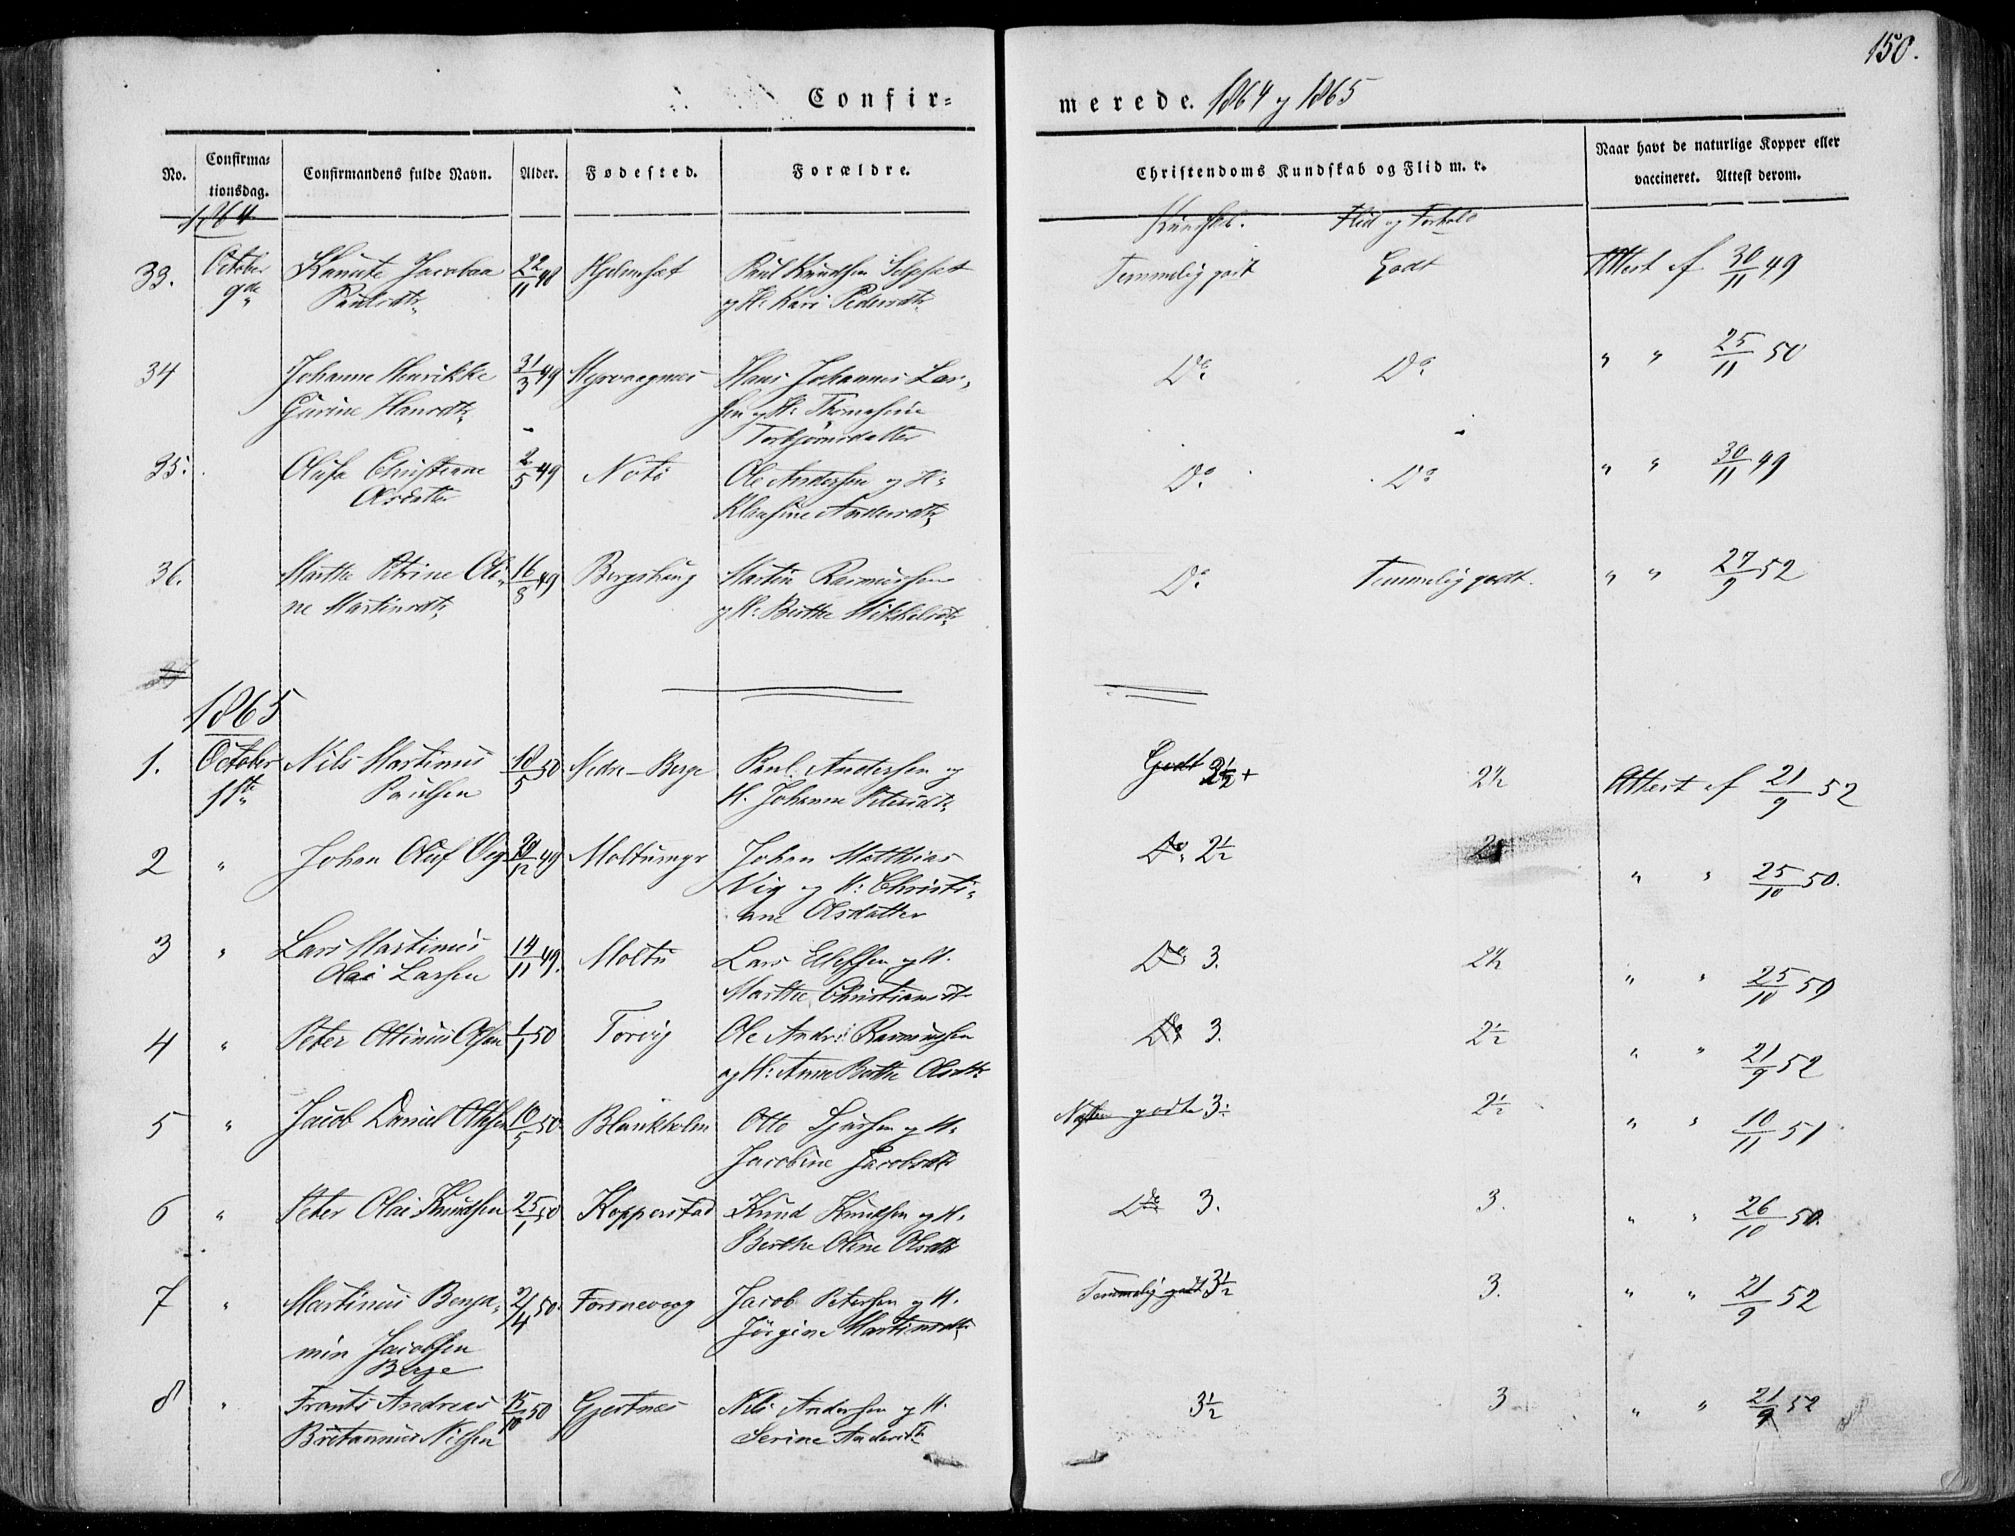 150.
Confir=
merede. 1864 og 1865
No.
Confirma=
tionsdag.
Confirmandens fulde Navn.
Alder.
Fødested.
Forældre.
Christendoms Kundskab og Flid m. v.
Naar havt de naturlige Kopper eller
vaccineret. Attest derom.
1864
Kundskab. Flid og Forhold
33. October Jacobaa 22/11 48 Paul Knudsen Temmelig godt Godt Attest af 30/11 49
9de Paulsdtr og H: Kari Pedersdtr
34 Johanne Henrikke 31/3 49 Myrvaagnes Hans Johannes Lar- Do Do " " 25/11 50
Gurine Hansdtr sen og H: Thomasine
Torbjörnsdatter
35. Olufa Christianne 2/5 49 Notö Ole Andersen og H: Do Do " " 30/11 49
Olsdatter Klausine Andersdtr
36. Marthe Petrine Oli- 16/8 49 Bergshaug Martin Rasmussen Do Temmelig godt. " " 27/9 52
ne Martinsdtr og H: Berthe Mikkelsdtr
1865
1. October Nils Martinus 18/5 50 Nedre-Berge Paul Andersen og Godt 2½+ 2½ Attest af 21/9 52
1ste Paulsen H. Johanne Petersdtr
2 " Johan Oluf Vig 29/12 49 Moltumyr Johan Matthias Do 2½ 2 " " 25/10 50.
Vig og H: Christi-
ane Olsdatter
3 " Lars Martinus 14/11 49. Moltu Lars Ellefsen og H. Do 3. 2½ " " 25/10 50
Olai Larsen Marthe Christiansdtr
4 " Peter Ottinus Olsen 1/1 50 Torvig Ole Andr: Rasmussen Do 3. 2½ " " 21/9 52
og H: Anne Berthe Olsdtr
5 " Jacob Daniel Ottesen 10/5 50 Blankholm Otto Sjursen og H: Næsten godt 3. 2½ " " 10/11 51
Jacobine Jacobsdtr
6 " Peter Olai Knudsen 25/1 50 Kopperstad Knud Knudsen og H. Do 3. 3. " " 26/10 50.
Berthe Oline Olsdtr
7 " Martinus Benja- 2/4 50. Fosnevaag Jacob Petersen og H. Temmelig godt 3½ 3. " " 21/9 52
min Jacobsen Jörgine Martinsdtr
Berge
8 " Frants Andreas 15/10 50 Gjertnes Nils Andersen og H. 3½ 3 " " 21/9 52
Britannus Nilsen Serine Andersdtr